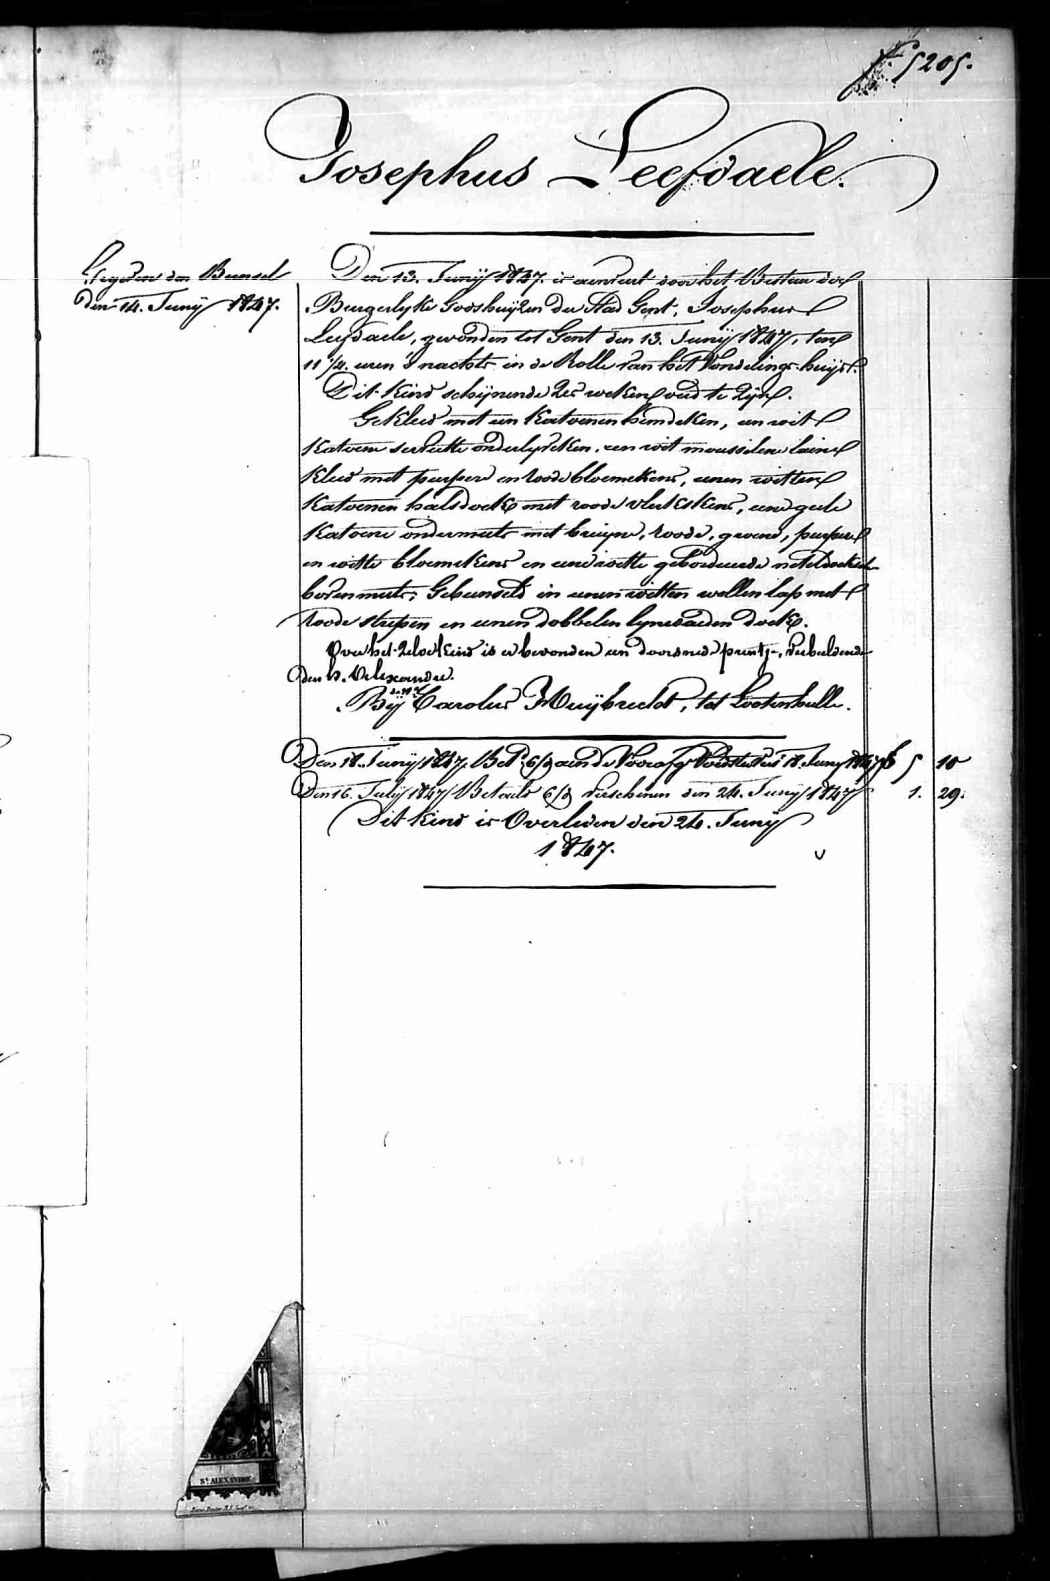 f. 5205.
Josephus Leefdaele.
Gegeven den Bunsel
den 14. Junij 1847.
Den 13. Junij 1847. is aenveert door het Bestuer der
Burgerlyke Godshuijzen der Stad Gent, Josephus
Leefdaele, gevonden tot Gent den 13. Junij 1847, ten
11 1/4. uren 's nachts in de Rolle van het Vondelings-huijs.
Dit kind schijnende 2er weken oud te zijn.
Gekleed met een katoenen hemdeken, een wit
katoene servette onderlyfken, een wit mousseline laine
kleed met purpere en roode bloemekens, eenen witten
katoenen halsdoek met roode vlekskens, eene geele
katoene ondermuts met bruijne, roode, groene, purpere
en witte bloemekens en eene witte geborduerde neteldoeksche
bovenmuts; Gebunseld in eenen witten wollen lap met
roode strepen en eenen dobbelen lynwaeden doek.
Over het zelve kind is er bevonden een doorsneden printje, verbeeldende
den H. Alexander.
Bij Carolus Muijbrecht, tot Lootenhulle.
Den 18. Junij 1847. Bet. 6/9 aen de Voorafg. 18. Junij 1847 f 5 10
Den 16. Julij 1847 Betaeld 6/9 verschenen den 24. Junij 1847 1. 29.
Dit kind is Overleden den 24. Junij
1847.
St ALEXANDRE.